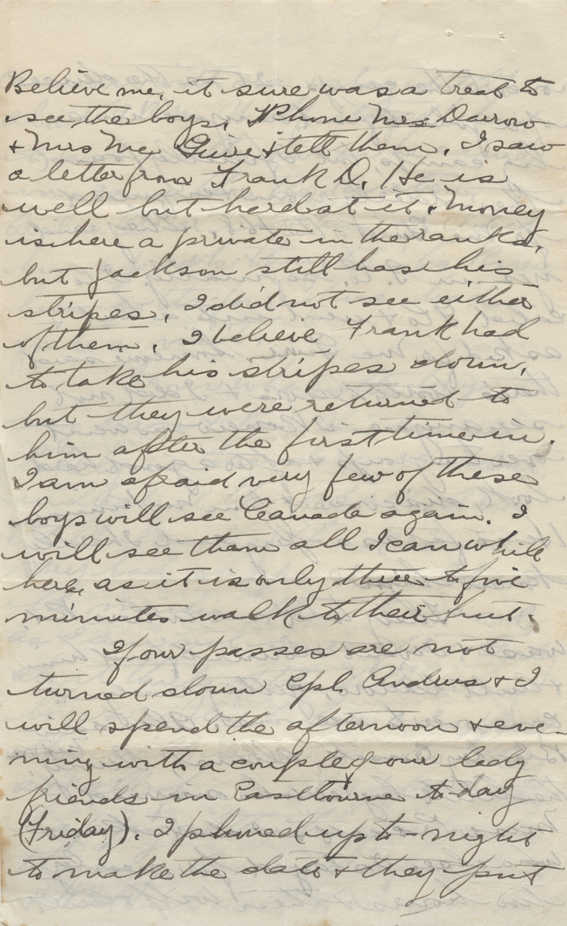 Believe me, it sure was a treat to
see the boys. Phone Mrs Darrow
+ Mrs Mc & tell them. I saw
a letter from Frank D. He is
well but hard at it + Money
is here a private in the ranks,
but Jackson still has his
stripes. I did not see either
of them. I believe Frank had
to take his stripes down,
but they were returned to
him after the first time in.
I am afraid very few of these
boys will see Canada again. I
will see them all I can while
here, as it is only three to five
minutes walk to their hut.
If our passes are not
turned down Cpl. Andrus + I
will spend the afternoon + eve-
ning with a couple of our lady
friends in Eastbourne to-day
(Friday). I phoned up to-night
to make the date + they put